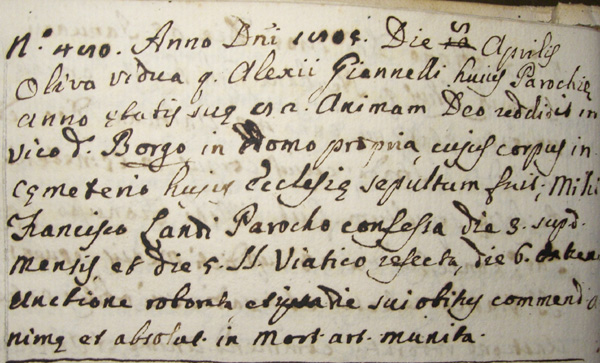 N.º 450. Anno Dñi 1505. Die 10 5 Aprilis
Oliva vidua q. Alexii Giannelli huius Parochię
anno ętatis suę 52. Animam Deo reddidit in
vico d.º Borgo in domo propria, cujus corpus in
cęmeterio hujus Ecclesię sepultum fuit; Mihi
Francisco Landi Parocho confessa die 3. supd.
mensis, et die 5. SS. Viatico refecta, die 6.
unctione roborata et die sui obitus commend
nimę et absolut. in mort. art. munita.